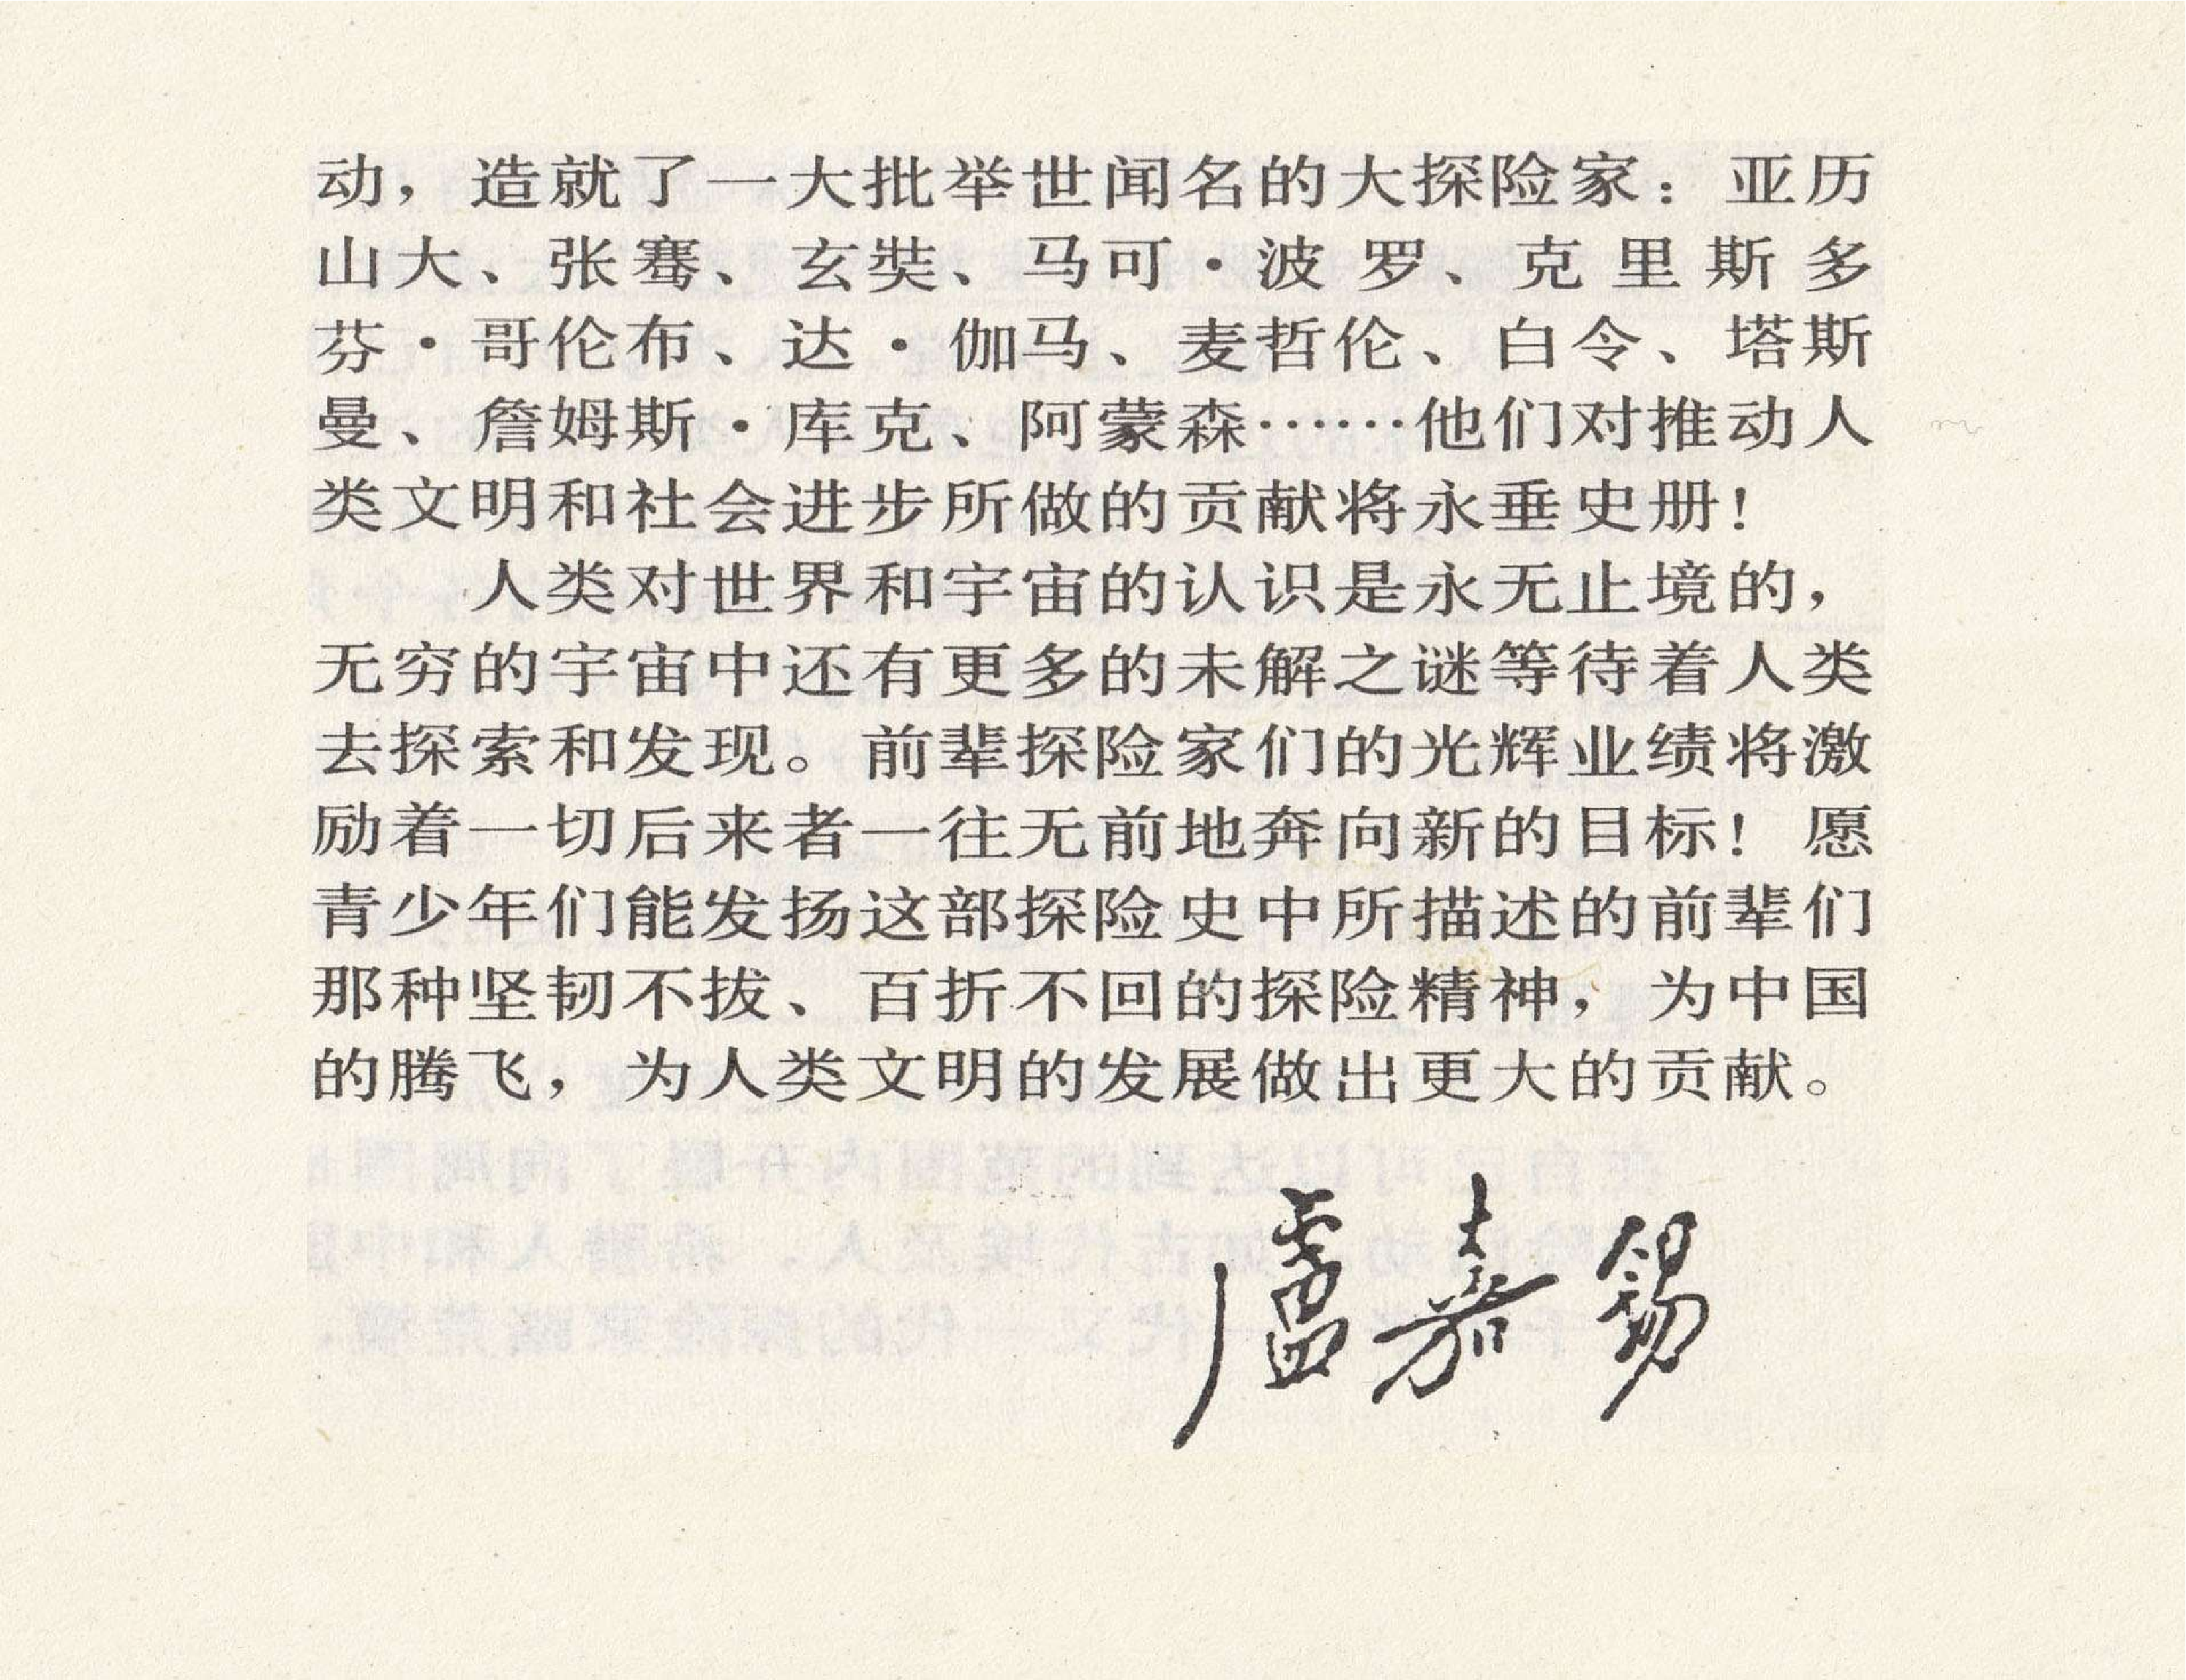 动，造就了一大批举世闻名的大探险家：亚历
山大、张骞、玄奘、马可·波罗、克里斯多
芬·哥伦布、达·伽马、麦哲伦、白令、塔斯
曼、詹姆斯·库克、阿蒙森……他们对推动人
类文明和社会进步所做的贡献将永垂史册！
人类对世界和宇宙的认识是永无止境的，
无穷的宇宙中还有更多的未解之谜等待着人类
去探索和发现。前辈探险家们的光辉业绩将激
励着一切后来者一往无前地奔向新的目标！愿
青少年们能发扬这部探险史中所描述的前辈们
那种坚韧不拔、百折不回的探险精神，为中国
的腾飞，为人类文明的发展做出更大的贡献。
盧嘉錫